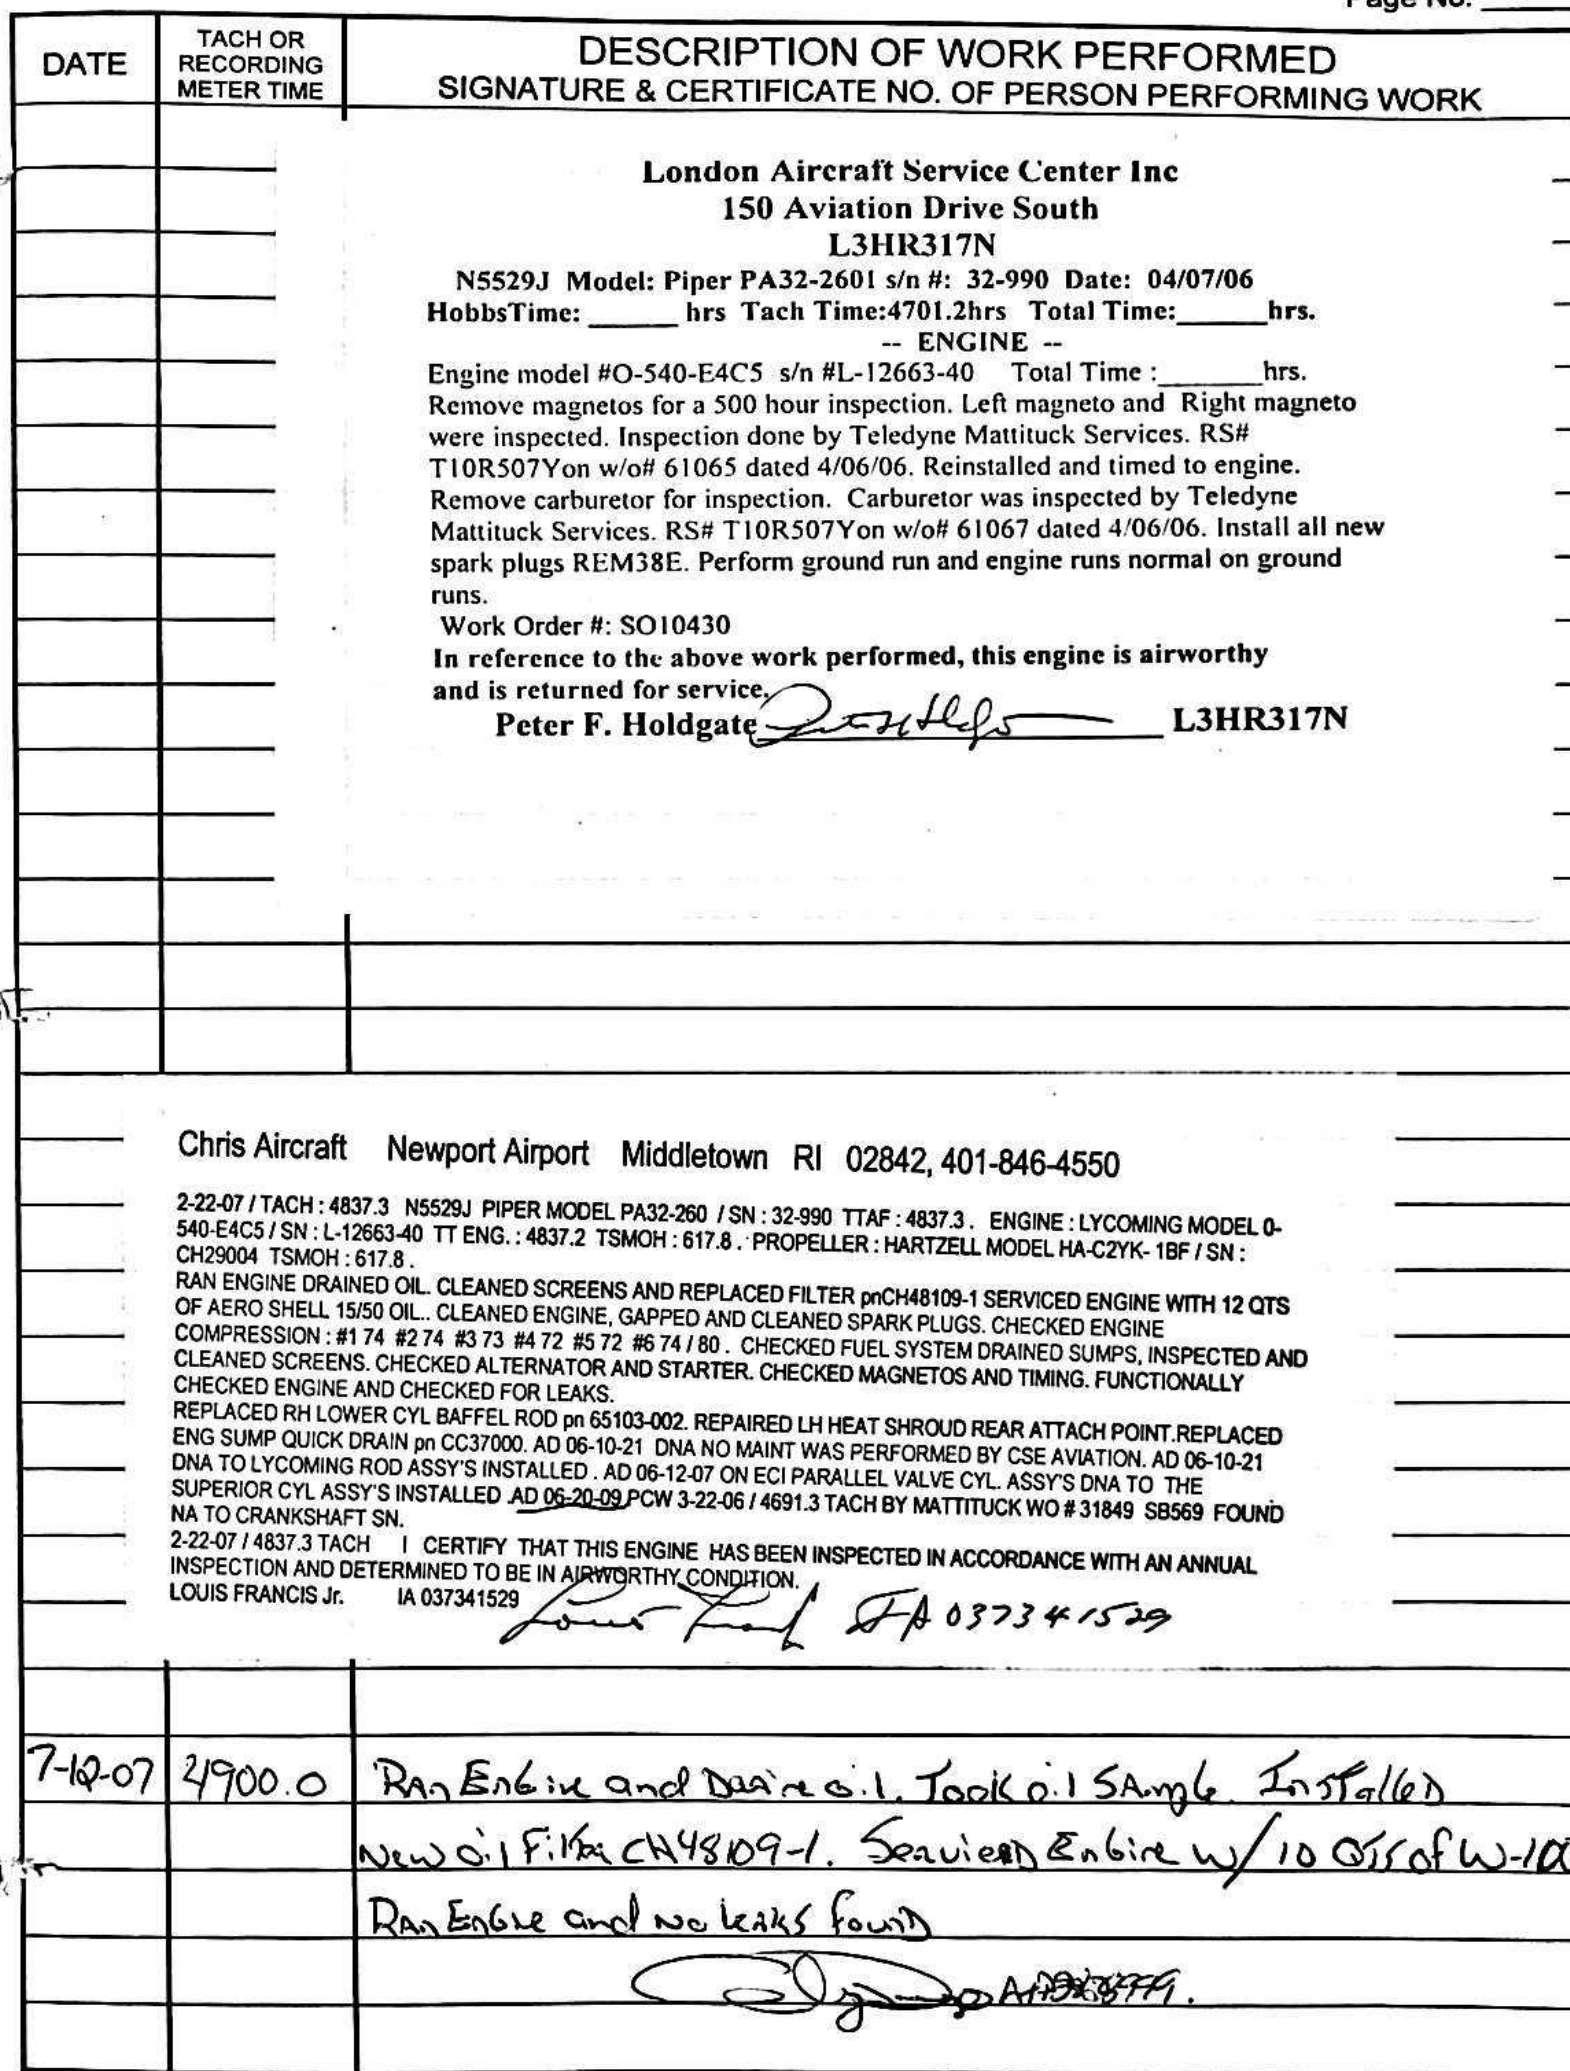 Page No.
DATE
TACH OR
RECORDING
METER TIME
DESCRIPTION OF WORK PERFORMED
SIGNATURE & CERTIFICATE NO. OF PERSON PERFORMING WORK
London Aircraft Service Center Inc
150 Aviation Drive South
L3HR317N
N5529J Model: Piper PA32-260I s/n #: 32-990 Date: 04/07/06
HobbsTime: ______ hrs Tach Time:4701.2hrs Total Time:______hrs.
-- ENGINE --
Engine model #O-540-E4C5 s/n #L-12663-40 Total Time :_______hrs.
Remove magnetos for a 500 hour inspection. Left magneto and Right magneto
were inspected. Inspection done by Teledyne Mattituck Services. RS#
T10R507Yon w/o# 61065 dated 4/06/06. Reinstalled and timed to engine.
Remove carburetor for inspection. Carburetor was inspected by Teledyne
Mattituck Services. RS# T10R507Yon w/o# 61067 dated 4/06/06. Install all new
spark plugs REM38E. Perform ground run and engine runs normal on ground
runs.
Work Order #: SO10430
In reference to the above work performed, this engine is airworthy
and is returned for service.
Peter F. Holdgate L3HR317N
Chris Aircraft Newport Airport Middletown RI 02842, 401-846-4550
2-22-07 / TACH : 4837.3 N5529J PIPER MODEL PA32-260 / SN : 32-990 TTAF : 4837.3 . ENGINE : LYCOMING MODEL 0-
540-E4C5 / SN : L-12663-40 TT ENG. : 4837.2 TSMOH : 617.8 . PROPELLER : HARTZELL MODEL HA-C2YK- 1BF / SN :
CH29004 TSMOH : 617.8 .
RAN ENGINE DRAINED OIL. CLEANED SCREENS AND REPLACED FILTER pnCH48109-1 SERVICED ENGINE WITH 12 QTS
OF AERO SHELL 15/50 OIL.. CLEANED ENGINE, GAPPED AND CLEANED SPARK PLUGS. CHECKED ENGINE
COMPRESSION : #1 74 #2 74 #3 73 #4 72 #5 72 #6 74 / 80 . CHECKED FUEL SYSTEM DRAINED SUMPS, INSPECTED AND
CLEANED SCREENS. CHECKED ALTERNATOR AND STARTER. CHECKED MAGNETOS AND TIMING. FUNCTIONALLY
CHECKED ENGINE AND CHECKED FOR LEAKS.
REPLACED RH LOWER CYL BAFFEL ROD pn 65103-002. REPAIRED LH HEAT SHROUD REAR ATTACH POINT.REPLACED
ENG SUMP QUICK DRAIN pn CC37000. AD 06-10-21 DNA NO MAINT WAS PERFORMED BY CSE AVIATION. AD 06-10-21
DNA TO LYCOMING ROD ASSY'S INSTALLED . AD 06-12-07 ON ECI PARALLEL VALVE CYL. ASSY'S DNA TO THE
SUPERIOR CYL ASSY'S INSTALLED .AD 06-20-09 PCW 3-22-06 / 4691.3 TACH BY MATTITUCK WO # 31849 SB569 FOUND
NA TO CRANKSHAFT SN.
2-22-07 / 4837.3 TACH I CERTIFY THAT THIS ENGINE HAS BEEN INSPECTED IN ACCORDANCE WITH AN ANNUAL
INSPECTION AND DETERMINED TO BE IN AIRWORTHY CONDITION.
LOUIS FRANCIS Jr. IA 037341529
IA 037341529
7-12-07 4900.0 Ran Engine and Draine oil. Took oil Sample. Installed
New oil Filter CH48109-1. Serviced Engine w/ 10 QTS of W-100
Ran Engine and No leaks found